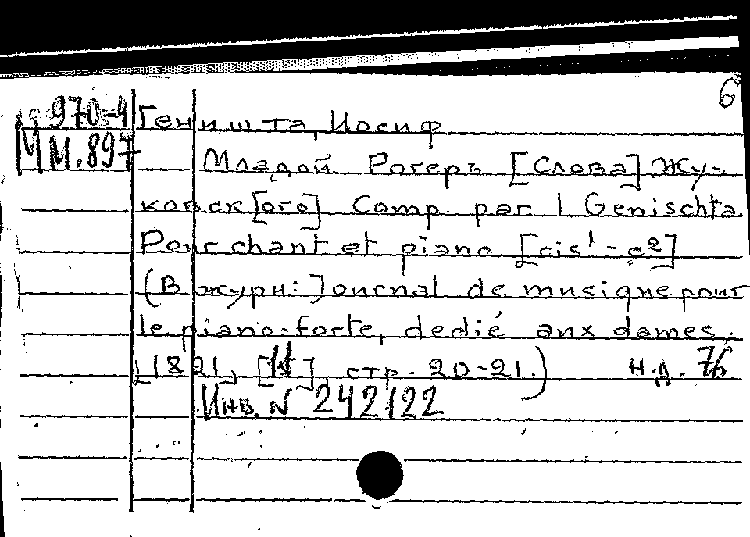 6
970-4 Геништа, Иосиф
М М.897 Младой Рогеръ [Слова] Жу-
ковск[ого] Comp par I Genischta
Pour chant et piano [cis¹-e²]
(В журн: Journal de musique pour
le piano-forte, dedié aux dames.
[1821, [11], стр. 20-21.) н.д. 76
Инв. N 242122